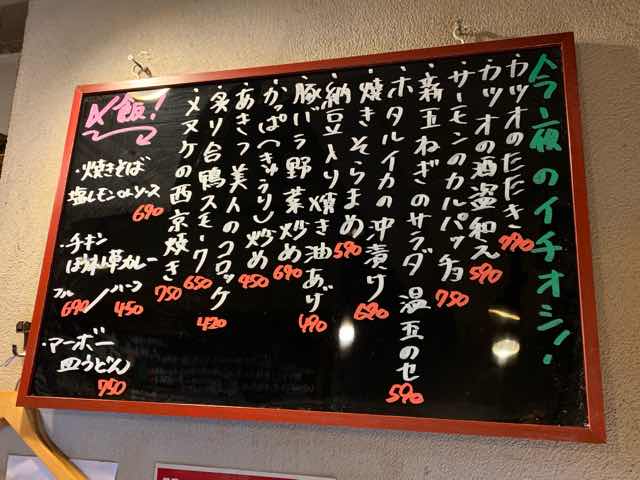 今夜のイチオシ!
カツオのたたき 790
カツオの酒盗和え 590
サーモンのカルパッチョ 750
新玉ねぎのサラダ 温玉のせ 590
ホタルイカの沖漬け 620
焼きそらまめ 590
納豆入り焼き油あげ 490
豚バラ野菜炒め 690
かっぱ(きゅうり)炒め 450
あきつ美人のコロッケ 420
炙り合鴨スモーク 650
メヌケの西京焼き 750
〆飯!
・焼きそば
塩レモンorソース
690
・チキン
ほうれん草カレー
フル 690 / ハーフ 450
・マーボー
皿うどん
750